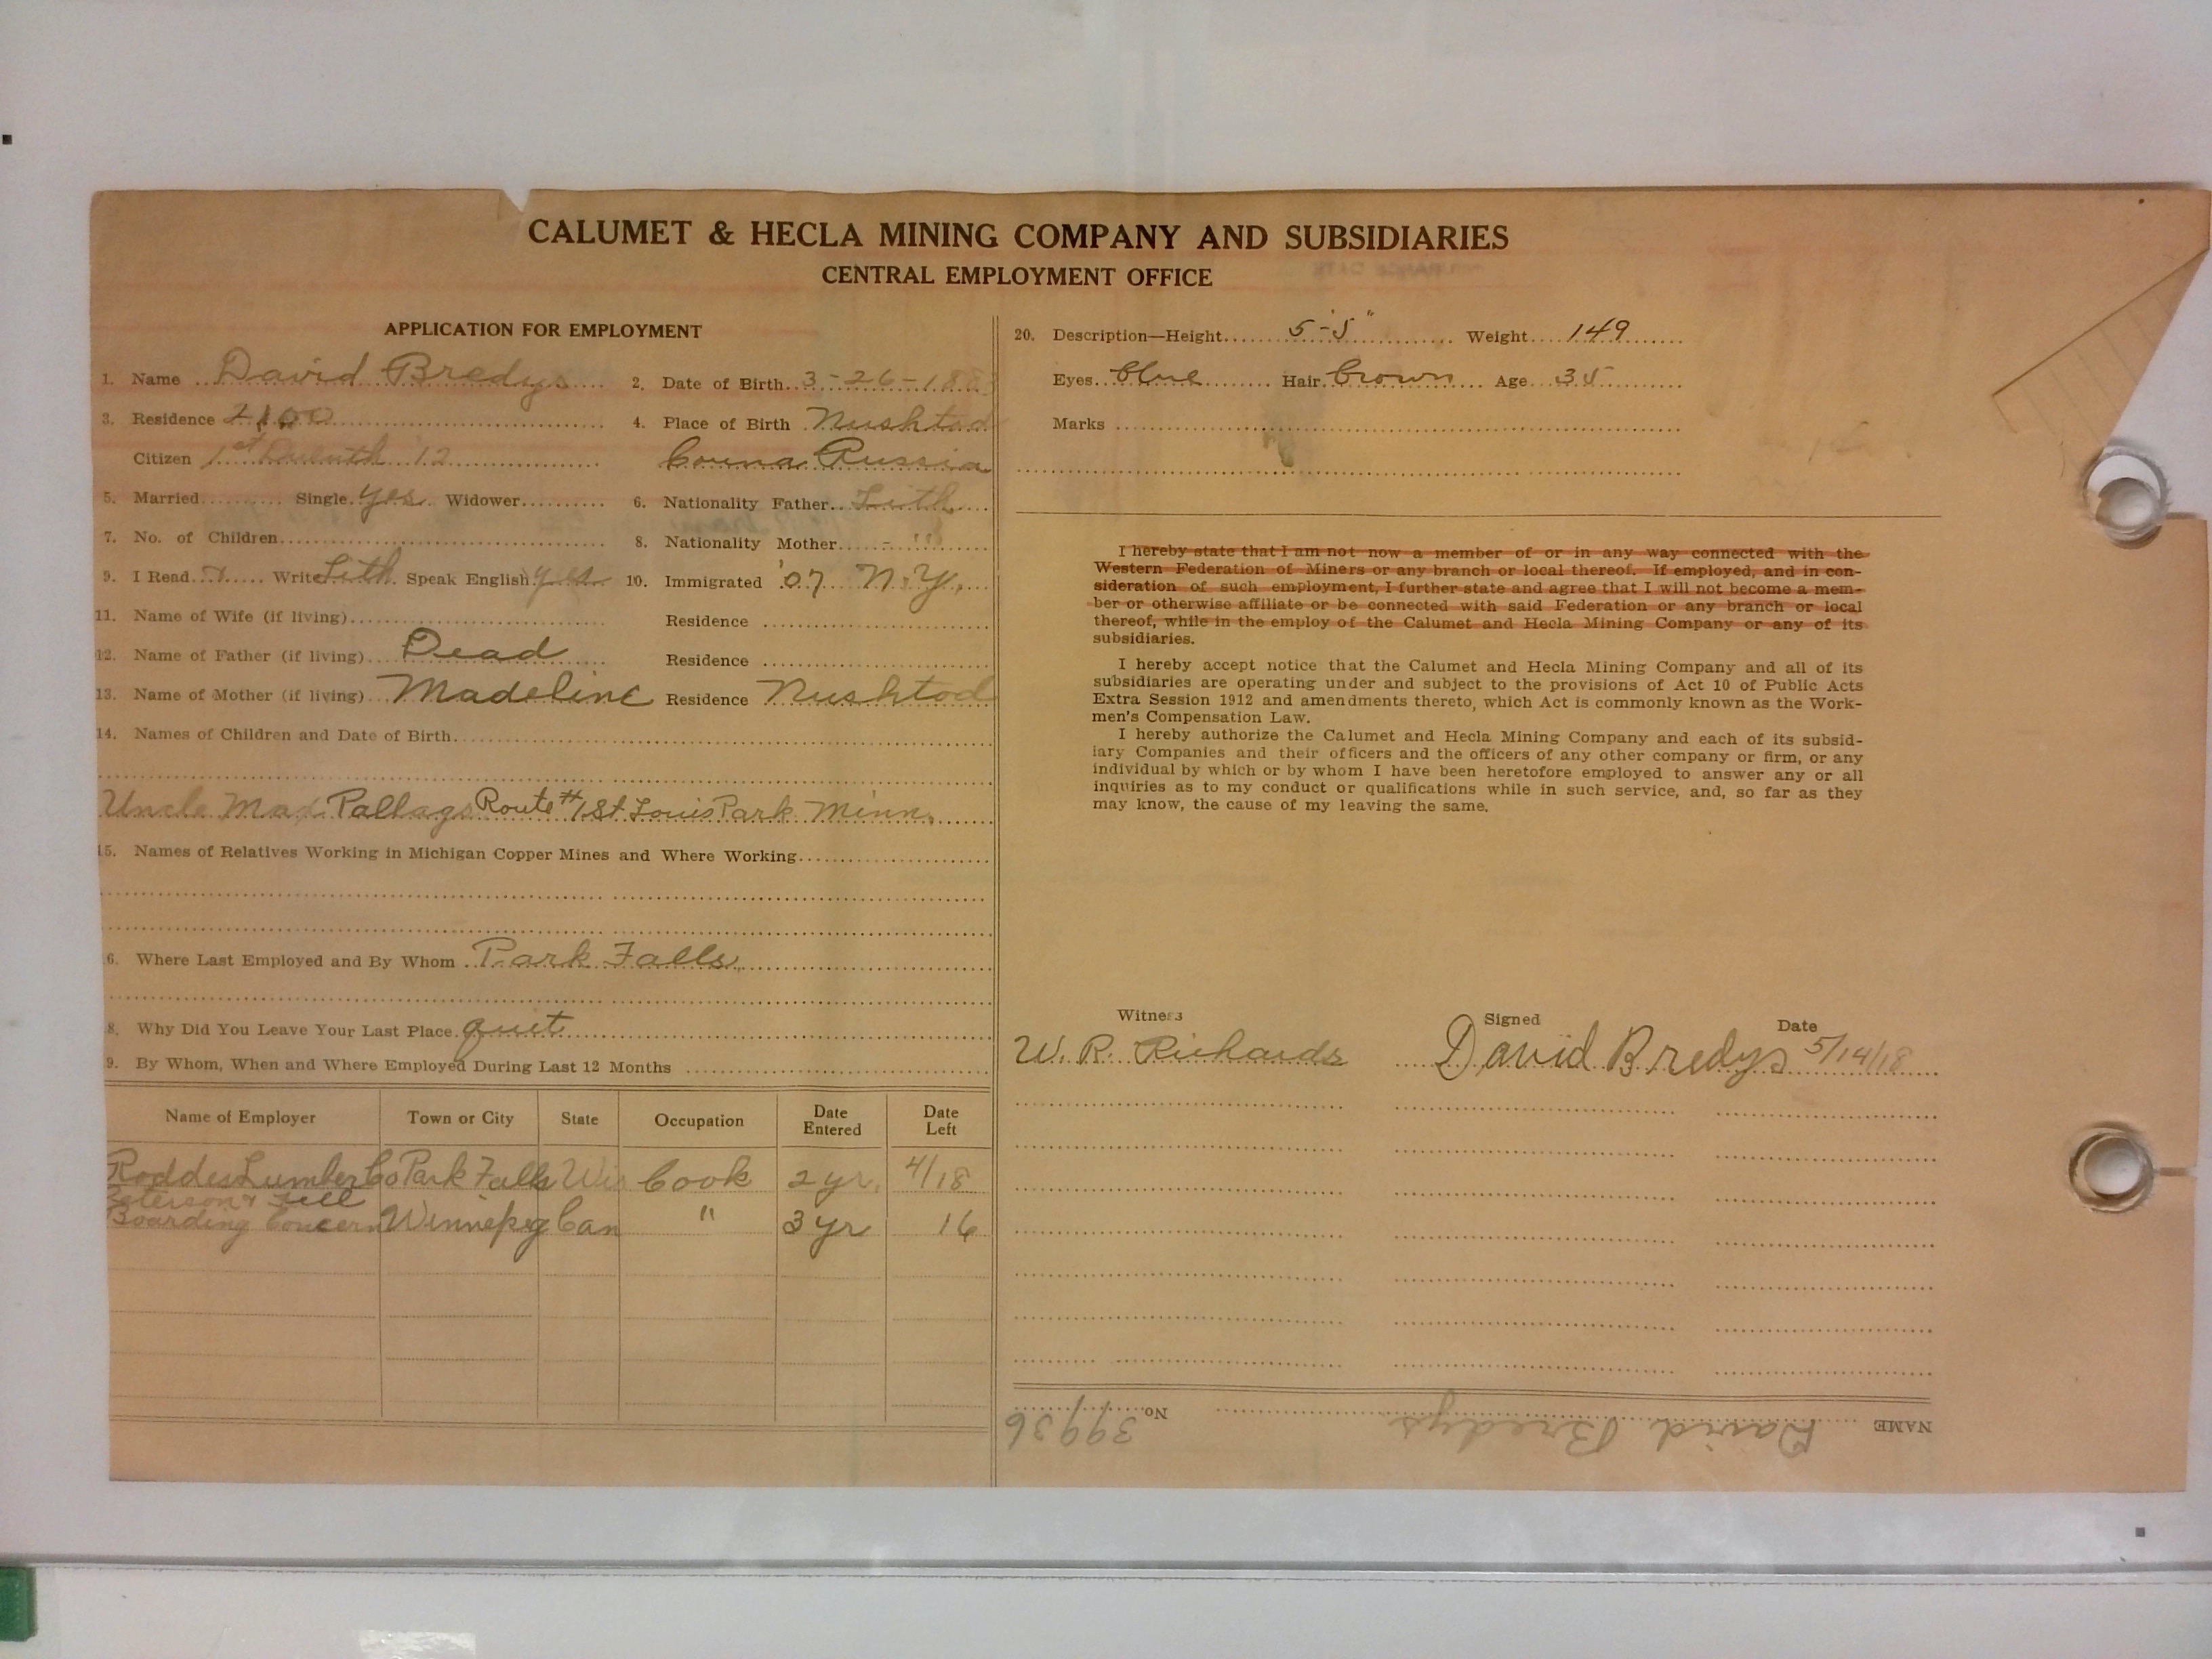 CALUMET & HECLA MINING COMPANY AND SUBSIDIARIES
CENTRAL EMPLOYMENT OFFICE
APPLICATION FOR EMPLOYMENT
1. Name David Bredys 2. Date of Birth 3-26-18
3. Residence 2100 4. Place of Birth Nushtod
Citizen 1st Duluth '12 Covna Russia
5. Married Single yes Widower 6. Nationality Father Lith
7. No. of Children 8. Nationality Mother "
9. I Read Write Lith Speak English yes 10. Immigrated '07 N.Y.
11. Name of Wife (if living) Residence
12. Name of Father (if living) Dead Residence
13. Name of Mother (if living) Madeline Residence Nushtod
14. Names of Children and Date of Birth
Uncle Max Pallags Route #1 St Louis Park Minn.
15. Names of Relatives Working in Michigan Copper Mines and Where Working
6. Where Last Employed and By Whom Park Falls
8. Why Did You Leave Your Last Place quit
9. By Whom, When and Where Employed During Last 12 Months
Name of Employer Town or City State Occupation Date Entered Date Left
Roddes Lumber Co Park Falls Wis Cook 2 yr. 4/18
Peterson &
Boarding Concern Winnepeg Can " 3 yr 16
20. Description—Height 5'-5" Weight 149
Eyes blue Hair brown Age 35
Marks
I hereby state that I am not now a member of or in any way connected with the
Western Federation of Miners or any branch or local thereof. If employed, and in con-
sideration of such employment, I further state and agree that I will not become a mem-
ber or otherwise affiliate or be connected with said Federation or any branch or local
thereof, while in the employ of the Calumet and Hecla Mining Company or any of its
subsidiaries.
I hereby accept notice that the Calumet and Hecla Mining Company and all of its
subsidiaries are operating under and subject to the provisions of Act 10 of Public Acts
Extra Session 1912 and amendments thereto, which Act is commonly known as the Work-
men's Compensation Law.
I hereby authorize the Calumet and Hecla Mining Company and each of its subsid-
iary Companies and their officers and the officers of any other company or firm, or any
individual by which or by whom I have been heretofore employed to answer any or all
inquiries as to my conduct or qualifications while in such service, and, so far as they
may know, the cause of my leaving the same.
Witness Signed Date
W. R. Richards David Bredys 5/14/18
NAME David Bredys No. 39936